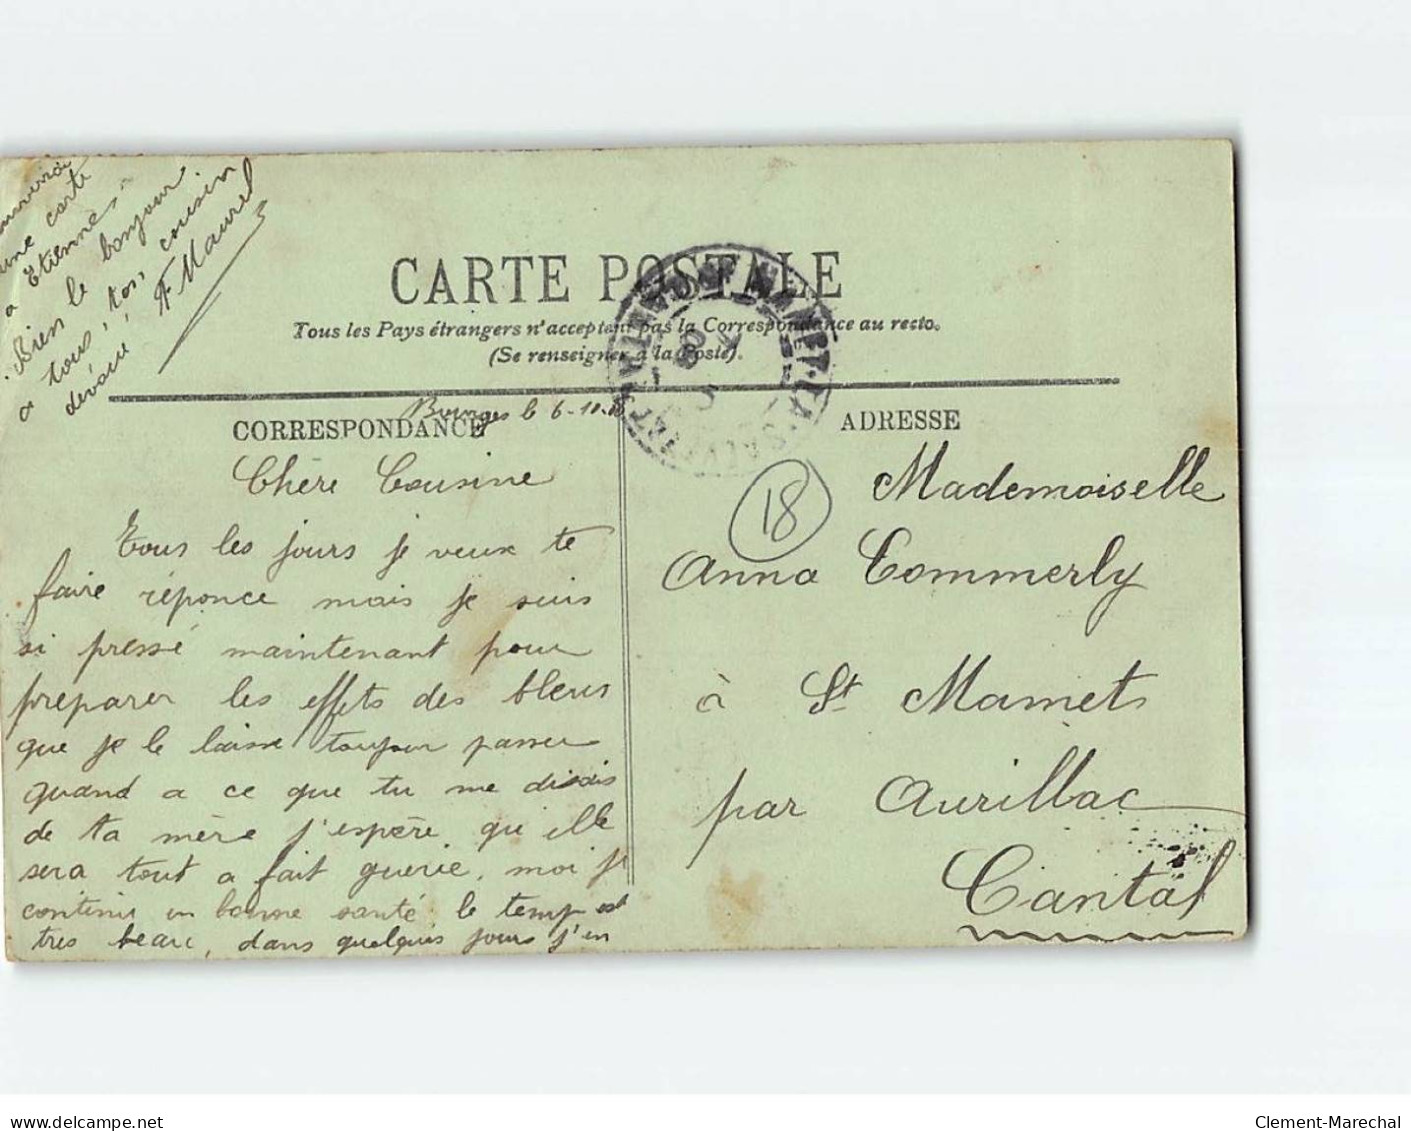 CARTE POSTALE
Tous les Pays étrangers n'acceptent pas la Correspondance au recto.
(Se renseigner à la Poste).
CORRESPONDANCE
ADRESSE
Bourges le 6-10-
Chère Cousine
Tous les jours je veux te
faire réponce mais je suis
si pressé maintenant pour
préparer les effets des bleus
que je le laisse toujour passer
quand a ce que tu me disais
de ta mère j'espère qu'elle
sera tout a fait guerie, moi je
continu en bonne santé le temp est
tres beau, dans quelques jours j'en
une carte
a Etienne.
Bien le bonjour
a tous, ton cousin
dévoué F Maurel
18
Mademoiselle
Anna Commerly
à St Mamets
par Aurillac
Cantal
www.delcampe.net
Clement-Marechal